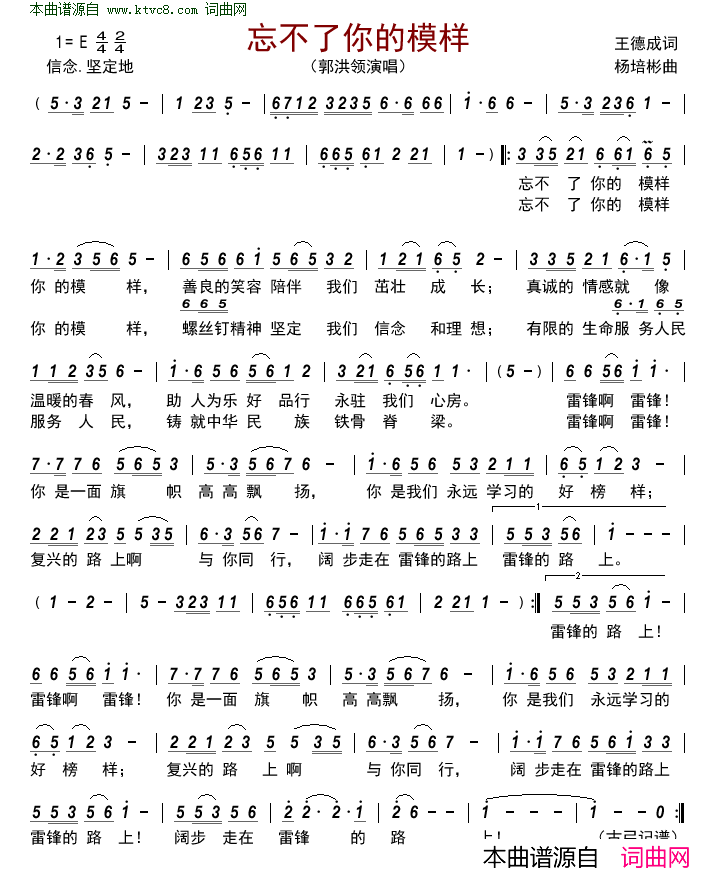 本曲谱源自 www.ktvc8.com 词曲网
忘不了你的模样
1=E 4/4 2/4
王德成词
信念.坚定地
(郭洪领演唱)
杨培彬曲
( 5·3 21 5 - | 1 23 5 - | 6712 3235 6·6 66 | i·6 5 - | 5·3 236 1 |
2·2 36 5 - | 323 11 656 11 | 665 61 2 21 | 1 - ) |: 3 35 21 6 61 6 5 |
忘不 了 你的 模样
忘不 了 你的 模样
1·2 356 5 - | 6 5 6 6 i 5 65 3 2 | 1 21 6 5 2 - | 3 3 5 2 1 6·1 5 |
你 的 模 样, 善良的笑容 陪伴 我们 茁壮 成 长; 真诚的 情感就 像
6 6 5 6·1 6 5
你 的 模 样, 螺丝钉精神 坚定 我们 信念 和理 想; 有限的 生命服 务人民
1 1 2 35 6 - | i·6 5 6 561 2 | 3 21 6 56 1 1· | (5 -) | 6 6 56 i i· |
温暖的春 风, 助 人为乐 好 品行 永驻 我们 心房。 雷锋啊 雷锋!
服务 人 民, 铸 就中华 民 族 铁骨 脊 梁。 雷锋啊 雷锋!
7·7 7 6 565 3 | 5·3 567 6 - | i·6 5 6 5 3 2 1 1 | 6 5 1 2 3 - |
你 是一面 旗 帜 高 高 飘 扬, 你 是我们 永远 学习的 好 榜 样;
2 2 1 23 5 535 | 6·3 56 7 - | i·i 7 6 5 6 5 3 3 | 5 5 3 56 | i - - - |
复兴的 路 上啊 与 你同 行, 阔 步走在 雷锋的路上 雷锋的 路 上。
( 1 - 2 - | 5 - 323 11 | 656 11 665 61 | 2 21 1 - ) :| 5 5 3 56 i - |
雷锋的 路 上!
6 6 56 i i· | 7·7 7 6 565 3 | 5·3 567 6 - | i·6 5 6 5 3 2 1 1 |
雷锋啊 雷锋! 你 是一面 旗 帜 高 高飘 扬, 你 是我们 永远学习的
6 5 1 2 3 - | 2 2 1 2 3 5 5 35 | 6·3 56 7 - | i·i 7 6 5 6 i 3 3 |
好 榜 样; 复兴的 路 上 啊 与 你同 行, 阔 步走在 雷锋的路上
5 5 3 56 i - | 5 5 3 56 | 2 2· 2·i | i - - - | i - - 0 :|
雷锋的 路 上! 阔步 走在 雷锋 的 路 上! (古弓记谱)
本曲谱源自 词曲网